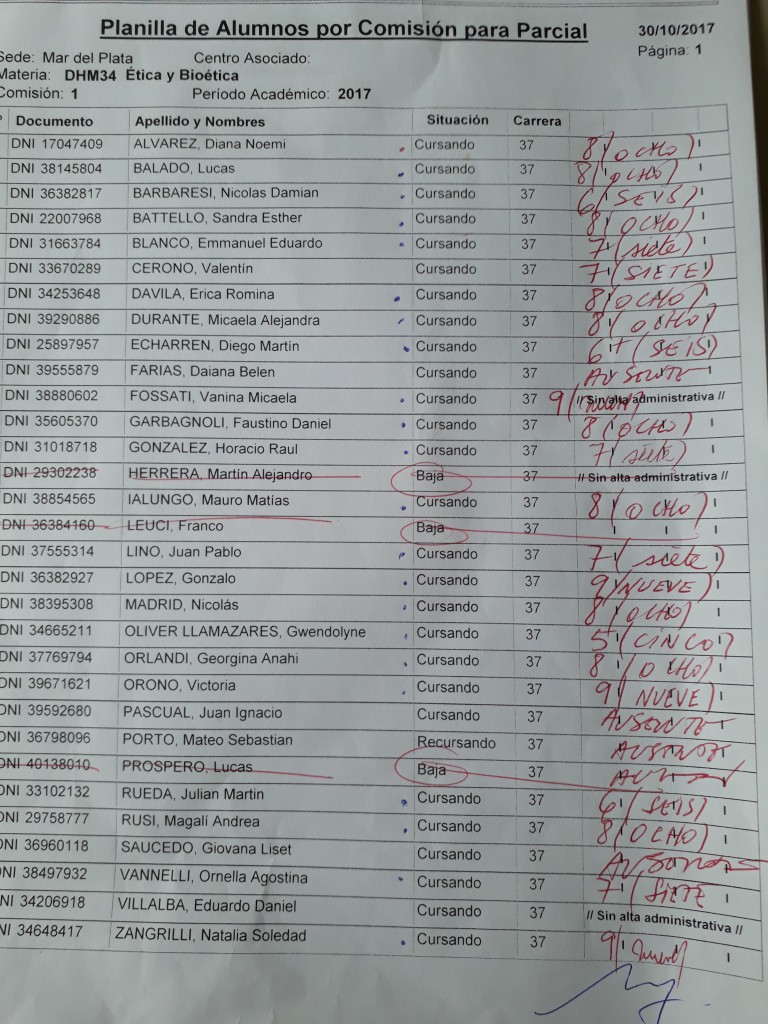 Planilla de Alumnos por Comisión para Parcial 30/10/2017
Página: 1
Sede: Mar del Plata Centro Asociado:
Materia: DHM34 Ética y Bioética
Comisión: 1 Período Académico: 2017
Documento Apellido y Nombres Situación Carrera
DNI 17047409 ALVAREZ, Diana Noemi Cursando 37 8 (OCHO)
DNI 38145804 BALADO, Lucas Cursando 37 8 (OCHO)
DNI 36382817 BARBARESI, Nicolas Damian Cursando 37 6 (SEIS)
DNI 22007968 BATTELLO, Sandra Esther Cursando 37 8 (OCHO)
DNI 31663784 BLANCO, Emmanuel Eduardo Cursando 37 7 (siete)
DNI 33670289 CERONO, Valentín Cursando 37 7 (SIETE)
DNI 34253648 DAVILA, Erica Romina Cursando 37 8 (OCHO)
DNI 39290886 DURANTE, Micaela Alejandra Cursando 37 8 (OCHO)
DNI 25897957 ECHARREN, Diego Martín Cursando 37 6+ (SEIS)
DNI 39555879 FARIAS, Daiana Belen Cursando 37 AUSENTE
DNI 38880602 FOSSATI, Vanina Micaela Cursando 37 9 // Sin alta administrativa //
DNI 35605370 GARBAGNOLI, Faustino Daniel Cursando 37 8 (OCHO)
DNI 31018718 GONZALEZ, Horacio Raul Cursando 37 7 (siete)
DNI 29302238 HERRERA, Martín Alejandro Baja 37 // Sin alta administrativa //
DNI 38854565 IALUNGO, Mauro Matías Cursando 37 8 (OCHO)
DNI 36384160 LEUCI, Franco Baja 37
DNI 37555314 LINO, Juan Pablo Cursando 37 7 (siete)
DNI 36382927 LOPEZ, Gonzalo Cursando 37 9 (NUEVE)
DNI 38395308 MADRID, Nicolás Cursando 37 8 (OCHO)
DNI 34665211 OLIVER LLAMAZARES, Gwendolyne Cursando 37 5 (CINCO)
DNI 37769794 ORLANDI, Georgina Anahi Cursando 37 8 (OCHO)
DNI 39671621 ORONO, Victoria Cursando 37 9 (NUEVE)
DNI 39592680 PASCUAL, Juan Ignacio Cursando 37 AUSENTE
DNI 36798096 PORTO, Mateo Sebastian Recursando 37 AUSENTE
DNI 40138010 PROSPERO, Lucas Baja 37
DNI 33102132 RUEDA, Julian Martin Cursando 37 6 (SEIS)
DNI 29758777 RUSI, Magalí Andrea Cursando 37 8 (OCHO)
DNI 36960118 SAUCEDO, Giovana Liset Cursando 37
DNI 38497932 VANNELLI, Ornella Agostina Cursando 37 7 (SIETE
DNI 34206918 VILLALBA, Eduardo Daniel Cursando 37 // Sin alta administrativa //
DNI 34648417 ZANGRILLI, Natalia Soledad Cursando 37 9